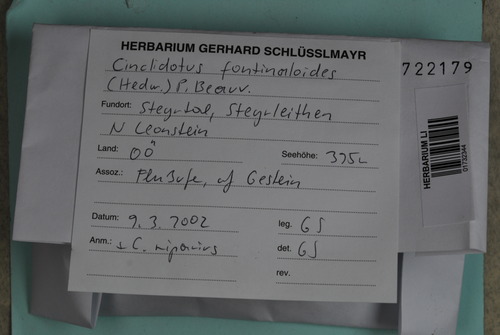 HERBARIUM GERHARD SCHLÜSSLMAYR
Cinclidotus fontinaloides
(Hedw.) P. Beauv.
Fundort: Steyrtal, Steyrleithen
N Leonstein
Land: OÖ Seehöhe: 395
Assoz.: Flußufer, auf Gestein
Datum: 9.3.2002 leg. GS
Anm.: C. riparius det. GS
rev.
722179
HERBARIUM LI
01732344